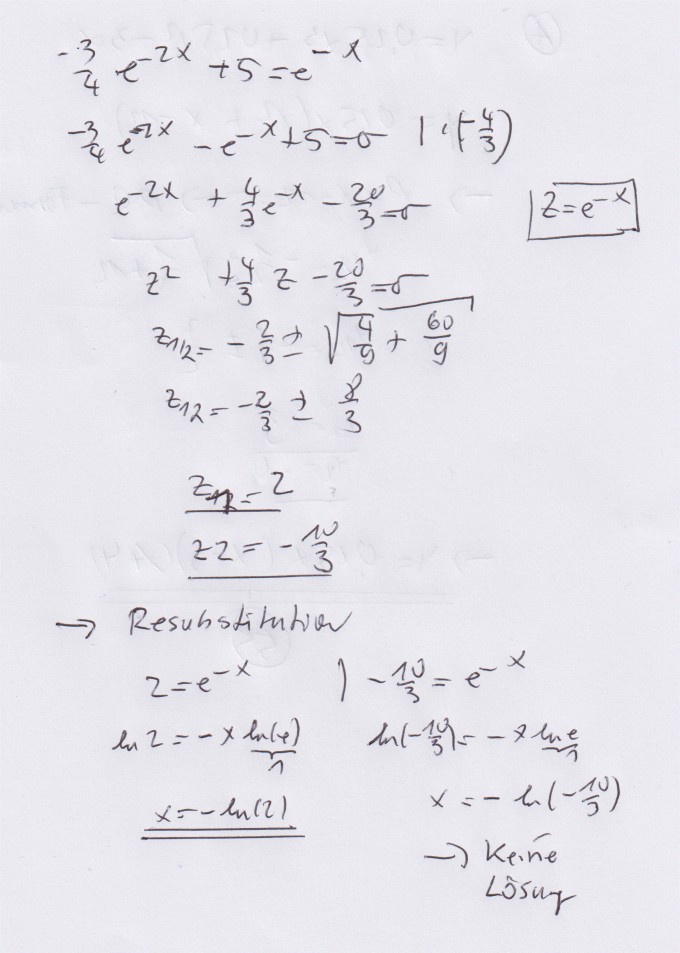 -3/4 e^-2x + 5 = e^-x
-3/4 e^-2x - e^-x + 5 = 0 | · (-4/3)
e^-2x + 4/3 e^-x - 20/3 = 0
z = e^-x
z² + 4/3 z - 20/3 = 0
z1/2 = - 2/3 ± √(4/9 + 60/9)
z12 = - 2/3 ± 8/3
z1 = 2
z2 = - 10/3
→ Resubstitution
2 = e^-x | - 10/3 = e^-x
ln 2 = -x ln(e) ln(-10/3) = -x ln e
1 1
x = -ln(2) x = - ln(-10/3)
→ Keine
Lösung